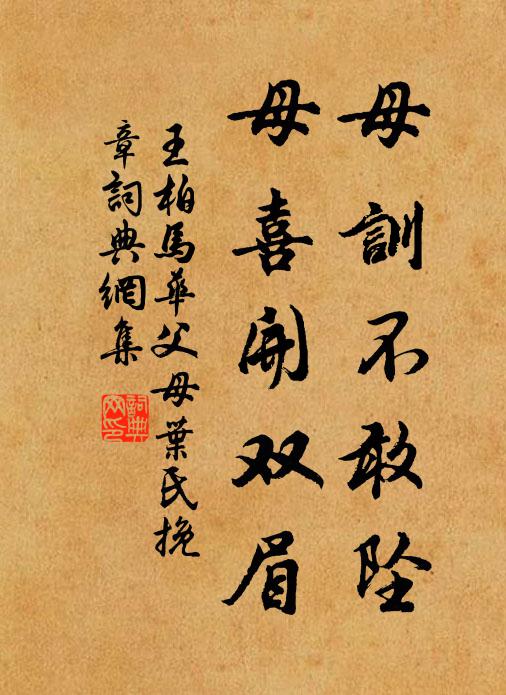 母訓不敢坠
母喜開双眉
王柏馬華父母葉氏挽
章詞典網集
詞典网印